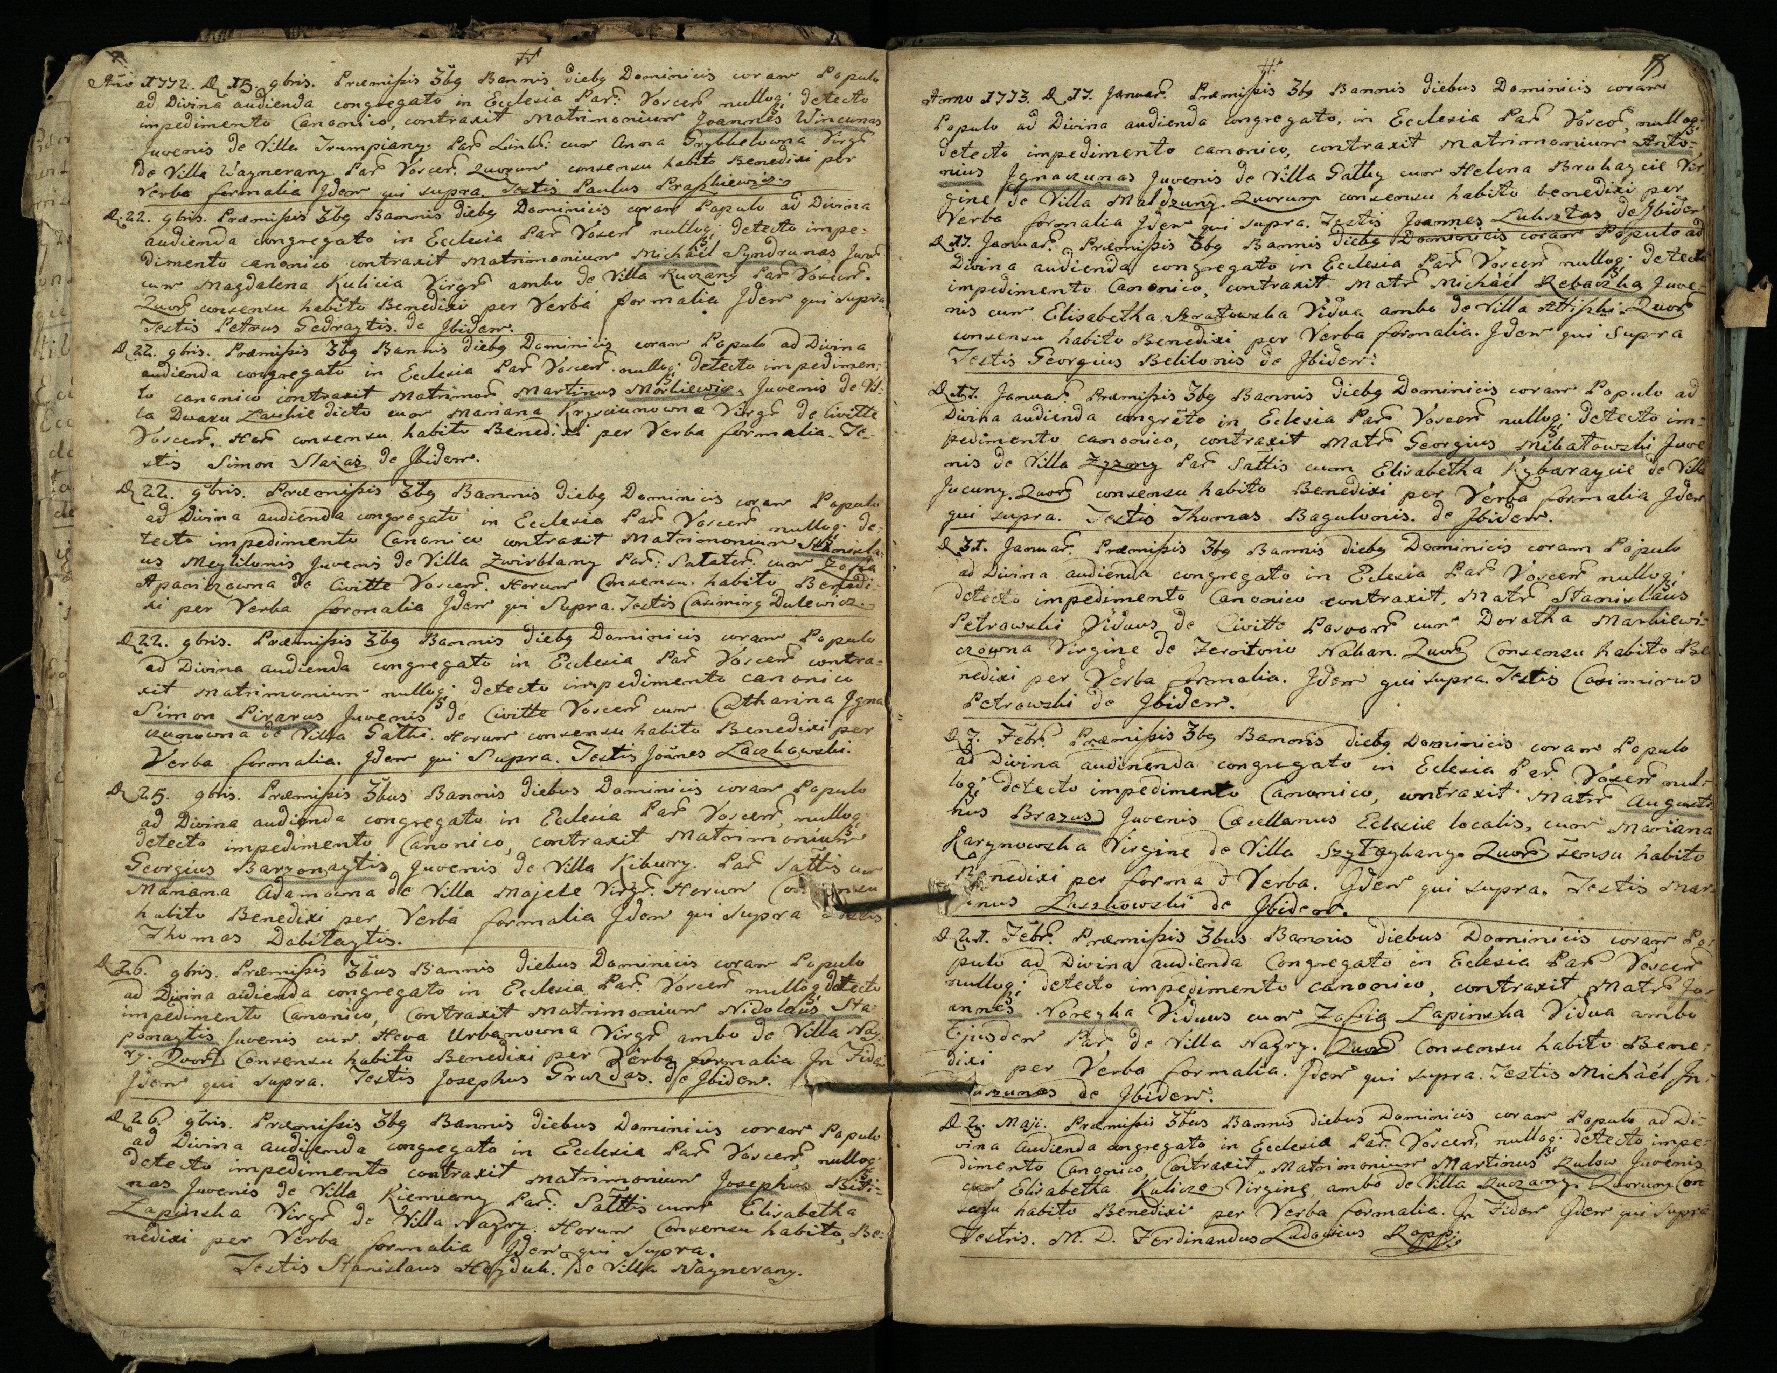 Año 1772. D. 15. 9bris. Præmissis 3bq Bannis dieby Dominicis coram Populo
ad Divina audienda congregato in Ecclesia Par: Voscen̄ nulloq; detecto
impedimento Canonico, contraxit Matrimonium Joannes Wincunas
Juvenis de Villa Trumpiany Par Linki: cum Anna Grybbelowna Virgē
de Villa Wagnerany Par Voscen̄. Quorum consensu habito Benedixi per
Verba formalia Jdem qui supra Testis Paulus Praskiewicz.
D. 22. 9bris. Præmissis 3bq Bannis dieby Dominicis coram Populo ad Divina
audienda congregato in Ecclesia Par Voscen̄ nulloq; detecto impe-
dimento canonico contraxit Matrimonium Michael Syndrunas Juve
cum Magdalena Kulicia Virgē ambo de Villa Ruczany Par Voscen̄.
Quor̄ consensu habito Benedixi per Verba formalia Jdem qui supra
Testis Petrus Gedraytis. de Jbidem.
D. 22. 9bris. Præmissis 3bq Bannis dieby Dominicis coram Populo ad Divina
audienda congregato in Ecclesia Par Voscen̄. nulloq; detecto impedimen-
to canonico contraxit Matrimon̄ Martinus Morkiewicz Juvenis de Vil-
la Dwaru Laukie dicto cum Mariana Kryciunowna Virgē de Civitte
Voscen̄. Hor̄ consensu habito Benedixi per Verba formalia. Te-
stis Simon Slaxas de Jbidem.
D. 22. 9bris. Præmissis 3bq Bannis dieby Dominicis coram Populo
ad Divina audienda congregato in Ecclesia Par Voscen̄ nulloq; de-
tecto impedimento Canonico contraxit Matrimonium Stanisla-
us Meylilonis Juvenis de Villa Zwirblany Par: Salater̄. cum Zofia
Apanizowna de Civitte Voscen̄. Horum Consensu habito Benedi-
xi per Verba formalia Jdem qui Supra. Testis Casimirq Dulewicz.
D. 22. 9bris. Præmissis 3bq Bannis dieby Dominicis coram Populo
ad Divina audienda congregato in Ecclesia Par Voscen̄ contra-
xit Matrimonium nulloq; detecto impedimento canonico
Simon Pirarus Juvenis de Civitte Voscen̄ cum Catharina Jgna
czunowna de Villa Gatthi. Horum consensu habito Benedixi per
Verba formalia. Jdem qui Supra. Testis Joānes Laszkowski.
D. 25. 9bris. Præmissis 3bus Bannis diebus Dominicis coram Populo
ad Divina audienda congregato in Ecclesia Par Voscen̄, nulloq;
detecto impedimento Canonico, contraxit Matrimonium
Georgius Barzonaytis Juvenis de Villa Kibury. Par Sattis cum
Mariana Adamowna de Villa Majele Virgē. Horum Consensu
habito Benedixi per Verba formalia Jdem qui supra Testis
Thomas Dabitaytis.
D. 26. 9bris. Præmissis 3bus Bannis diebus Dominicis coram Populo
ad Divina audienda congregato in Ecclesia Par: Voscen̄ nulloq detecto
impedimento Canonico, contraxit Matrimonium Nicolaus Sta-
ponaytis Juvenis cum Heva Urbanowna Virgē ambo de Villa Nag-
ry. Quor̄ Consensu habito Benedixi per Verba formalia Jn Fidem
Jdem qui supra. Testis Josephus Gruzdas. de Jbidem.
D. 26. 9bris. Præmissis 3bq Bannis diebus Dominicis coram Populo
ad Divina audienda congregato in Ecclesia Par Voscen̄ nulloq;
detecto impedimento contraxit Matrimonium Josephus
nas Juvenis de Villa Kiemiany Par: Sattis cum Elisabetha
Lapinska Virgē de Villa Nagry. Horum Consensu habito, Be-
nedixi per Verba formalia Jdem qui Supra.
Testis Stanislaus Heyduk. de Villa Wagnerany.
Anno 1773. D. 17. Januar̄. Præmissis 3bq Bannis diebus Dominicis coram
Populo ad Divina audienda congregato, in Ecclesia Par Voscen̄, nulloq;
detecto impedimento canonico, contraxit Matrimonium Anto-
nius Jgnaczunas Juvenis de Villa Gatty cum Helena Bruhaycie Vir
gine de Villa Maldzuny. Quorum consensu habito benedixi per
Verba formalia Jdem qui supra. Testis Joannes Luksztas de Jbidem
D. 17. Januar̄. Præmissis 3bq Bannis dieby Dominicis coram Populo ad
Divina audienda congregato in Ecclesia Par Voscen̄ nulloq; detecto
impedimento Canonico, contraxit Matr̄ Michael Rebaszka Juve-
nis cum Elisabetha Szratowska Vidua ambo de Villa Attiski. Quor̄
consensu habito Benedixi per Verba formalia. Jdem qui Supra
Testis Georgius Belilonis de Jbidem.
D. 17. Januar̄. Præmissis 3bq Bannis dieby Dominicis coram Populo ad
Divina audienda congrēto in Eclesia Par Voscen̄ nulloq; detecto im-
pedimento canonico, contraxit Matr̄ Georgius Mikatowski Juve
nis de Villa Zyzmy Par Sattis cum Elisabetha Kybaraycie de Villa
Jucuny. Quor̄ consensu habito Benedixi per Verba formalia Jdem
qui supra. Testis Thomas Bagulonis. de Jbidem.
D. 31. Januar̄. Præmissis 3bq Bannis dieby Dominicis coram Populo
ad Divina audienda congregato in Eclesia Par Voscen̄ nulloq;
detecto impedimento Canonico contraxit. Matr̄ Stanislaus
Petrowski Viduus de Civitte Posvorr̄ cum Dorotha Markiewi-
czowna Virgine de Territorio Naban. Quor̄ Consensu habito Be-
nedixi per Verba formalia. Jdem qui supra. Testis Casimirus
Petrowski de Jbidem.
D. 7. Febr̄. Præmissis 3bq Bannis dieby Dominicis coram Populo
ad Divina audinenda congregato in Eclesia Par Voscen̄ nul-
loq; detecto impedimento Canonico, contraxit Matr̄ Augusti-
nus Brazus Juvenis Cacellanus Eclesiæ localis, cum Mariana
Karynowska Virgine de Villa Szytayhany. Quor̄ sensu habito
Benedixi per forma d Verba. Jdem qui supra. Testis Mar-
tinus Laszkowski de Jbidem.
D. 21. Febr̄. Præmissis 3bus Bannis diebus Dominicis coram Po-
pulo ad Divina audienda Congregato in Eclesia Par Voscen̄
nulloq; detecto impedimento canonico, contraxit Matr̄ Jo-
annes Noreyka Viduus cum Zofia Lapinska Vidua ambo
Ejusdem Par, de Villa Nagry. Quor̄ Consensu habito Bene-
dixi per Verba formalia. Jdem qui supra. Testis Michael Jn-
duszunas de Jbidem.
D. 2. Maji. Præmissis 3bus Bannis diebus Dominicis coram Populo ad Di-
vina audienda congregato in Ecclesia Par: Voscen̄, nulloq; detecto impe-
dimento Canonico, Contraxit Matrimonium Martinus Kulow Juvenis
cum Elisabetha Kulicze Virgine ambo de Villa Ruczany. Quorum Con
sensu habito Benedixi per Verba formalia. Jn Fidem Jdem qui Supra
Testris. M. D. Ferdinandus Ludovicus Ropp